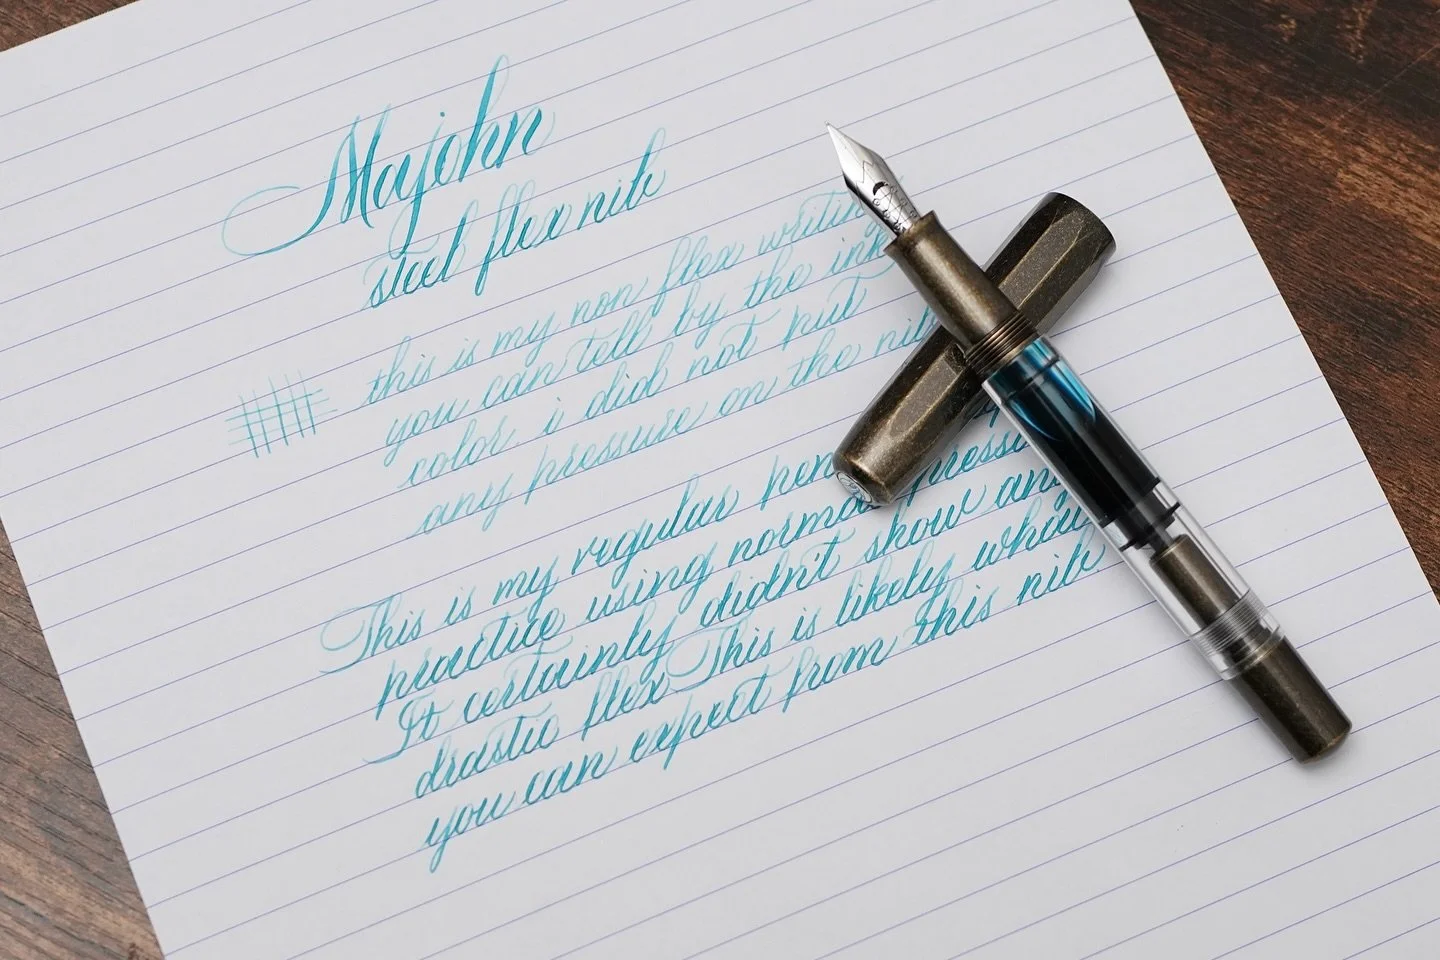 Majohn
steel flex nib
this is my non flex writing
you can tell by the ink
color. i did not put
any pressure on the nib
This is my regular pen
practice using normal
It certainly didn't show any
drastic flex This is likely what
you can expect from this nib